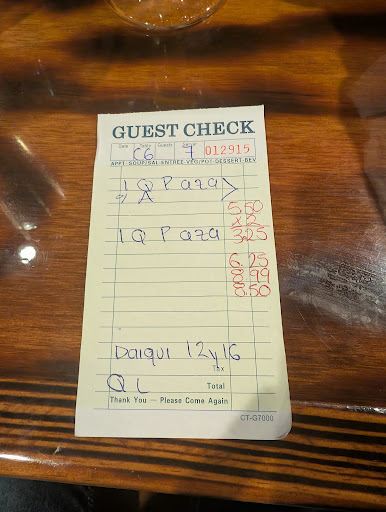 GUEST CHECK
Date Table Guests Server
C6 7 012915
APPT-SOUP/SAL-ENTREE-VEG/POT-DESSERT-BEV
1 Q Paza
A
5.50
x2
1 Q Paza 3.25
6.25
8.99
8.50
Daiqui 12y16
Tax
Q L Total
Thank You — Please Come Again
CT-G7000